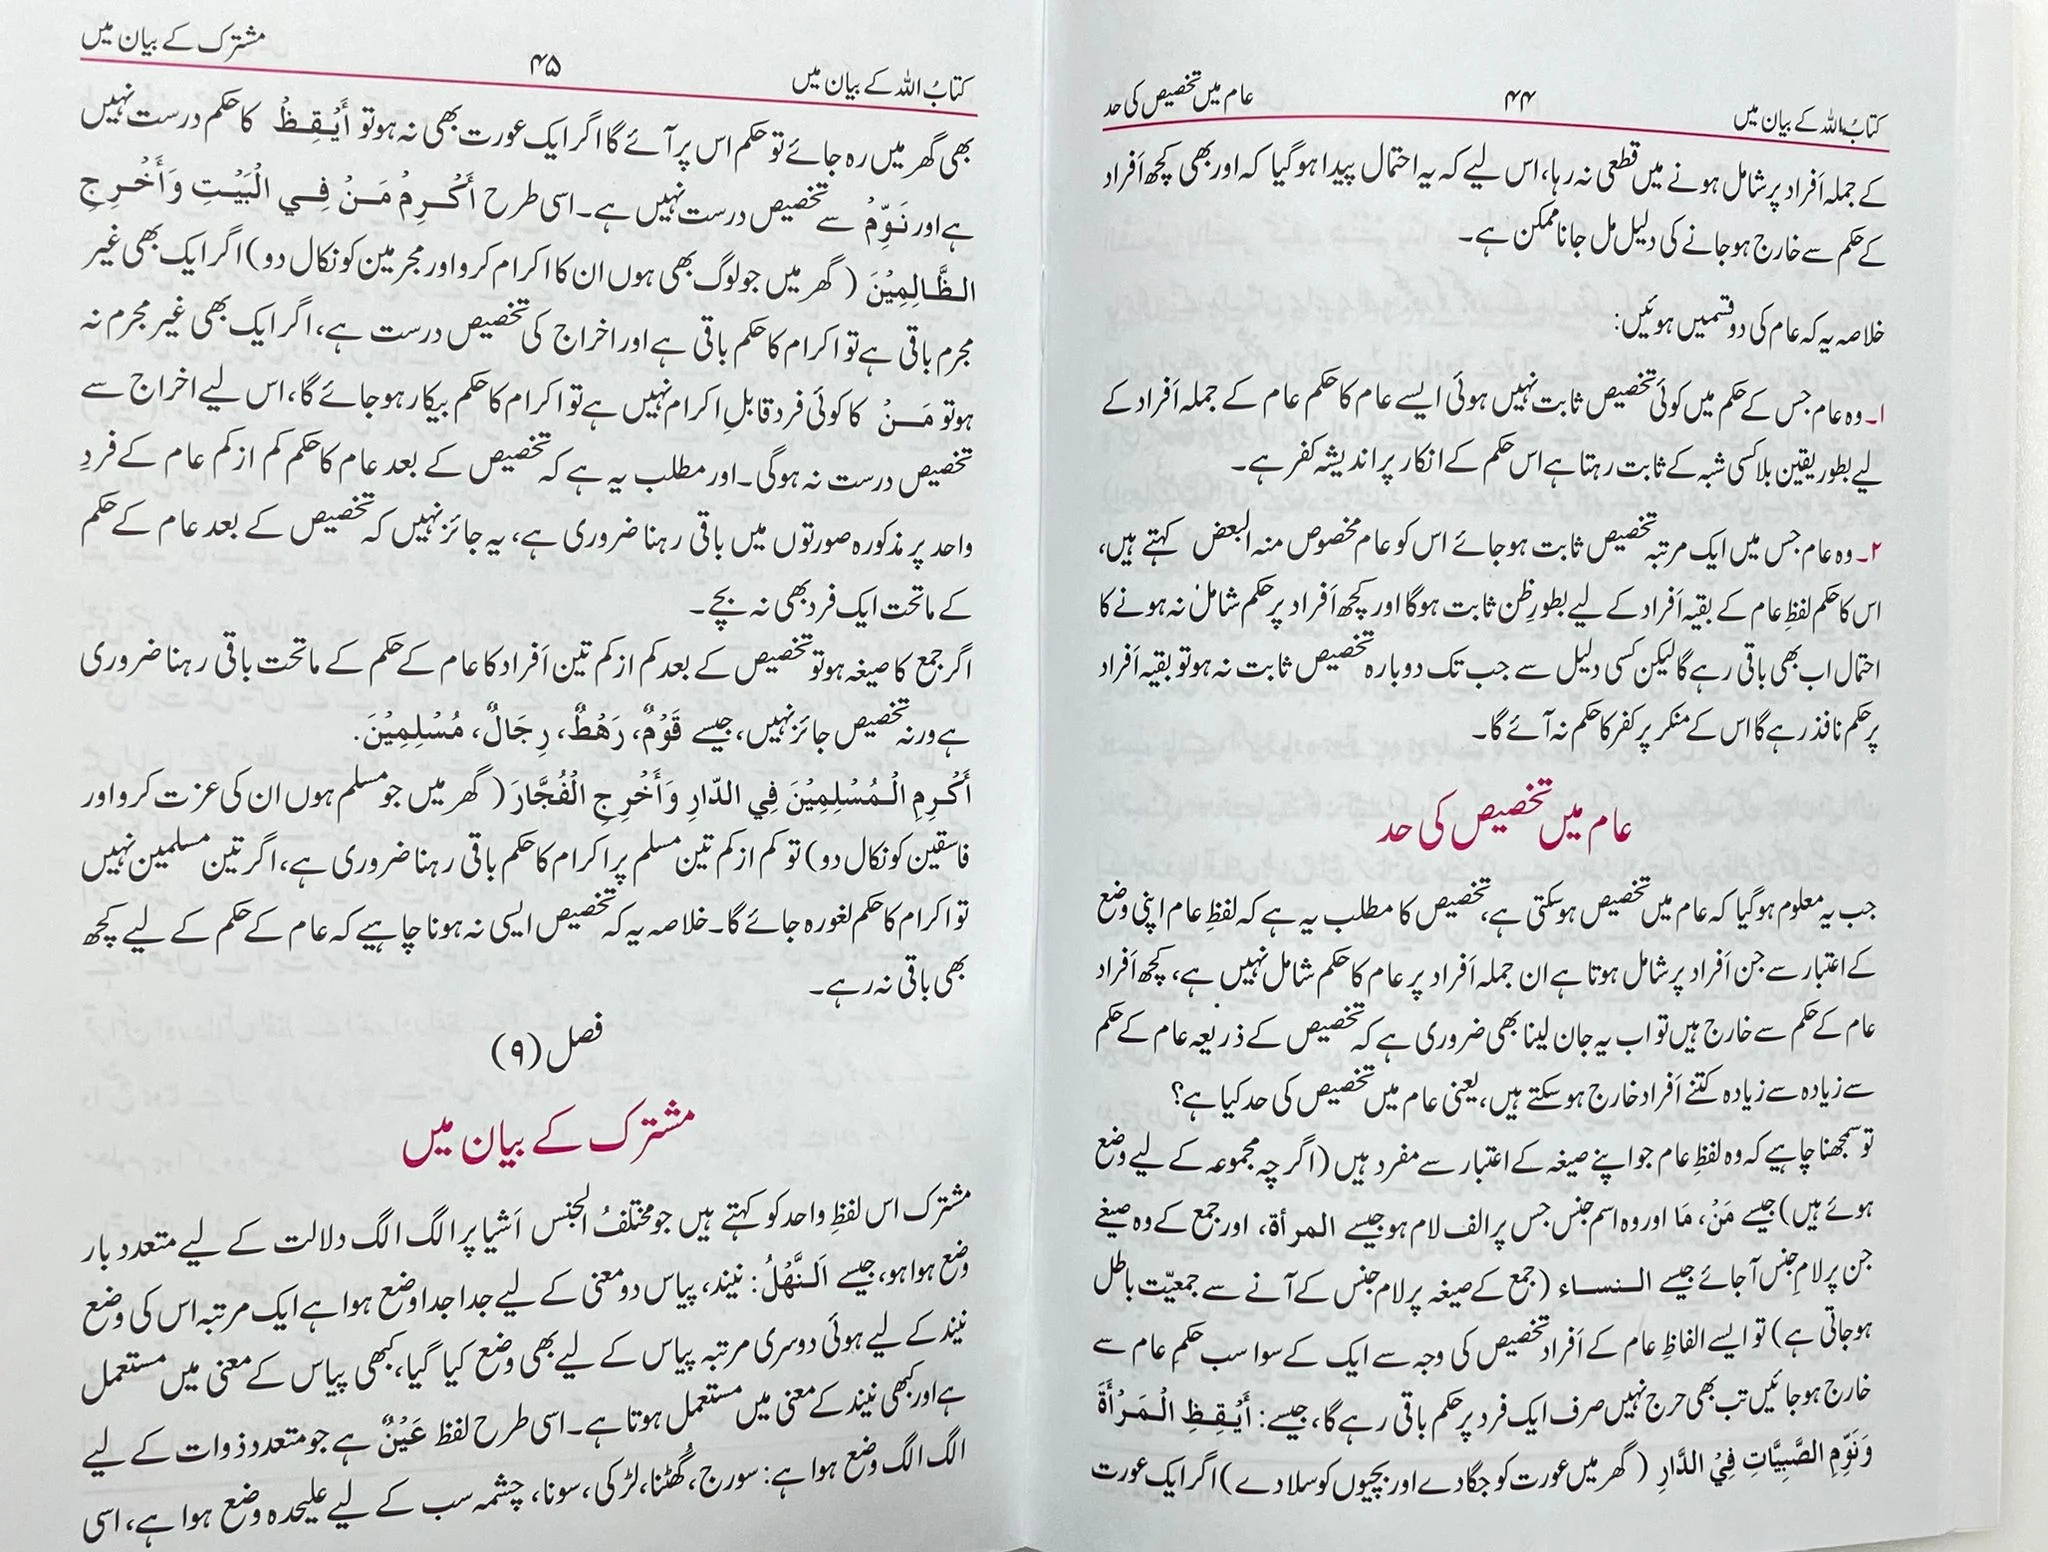 کتابُ اللہ کے بیان میں ۴۴ عام میں تخصیص کی حد
کے جملہ اَفراد پر شامل ہونے میں قطعی نہ رہا، اس لیے کہ یہ احتمال پیدا ہوگیا کہ اور بھی کچھ اَفراد
کے حکم سے خارج ہوجانے کی دلیل مل جانا ممکن ہے۔
خلاصہ یہ کہ عام کی دو قسمیں ہوئیں:
۱۔ وہ عام جس کے حکم میں کوئی تخصیص ثابت نہیں ہوئی ایسے عام کا حکم عام کے جملہ اَفراد کے
لیے بطور یقین بلا کسی شبہ کے ثابت رہتا ہے اس حکم کے انکار پر اندیشہ کفر ہے۔
۲۔ وہ عام جس میں ایک مرتبہ تخصیص ثابت ہوجائے اس کو عام مخصوص منہ البعض کہتے ہیں،
اس کا حکم لفظِ عام کے بقیہ اَفراد کے لیے بطورِ ظن ثابت ہوگا اور کچھ اَفراد پر حکم شامل نہ ہونے کا
احتمال اب بھی باقی رہے گا لیکن کسی دلیل سے جب تک دوبارہ تخصیص ثابت نہ ہو تو بقیہ اَفراد
پر حکم نافذ رہے گا اس کے منکر پر کفر کا حکم نہ آئے گا۔
عام میں تخصیص کی حد
جب یہ معلوم ہوگیا کہ عام میں تخصیص ہوسکتی ہے، تخصیص کا مطلب یہ ہے کہ لفظِ عام اپنی وضع
کے اعتبار سے جن اَفراد پر شامل ہوتا ہے ان جملہ اَفراد پر عام کا حکم شامل نہیں ہے، کچھ اَفراد
عام کے حکم سے خارج ہیں تو اب یہ جان لینا بھی ضروری ہے کہ تخصیص کے ذریعہ عام کے حکم
سے زیادہ سے زیادہ کتنے اَفراد خارج ہوسکتے ہیں، یعنی عام میں تخصیص کی حد کیا ہے؟
تو سمجھنا چاہیے کہ وہ لفظِ عام جو اپنے صیغہ کے اعتبار سے مفرد ہیں (اگرچہ مجموعہ کے لیے وضع
ہوئے ہیں) جیسے مَنْ، مَا اور وہ اسم جنس جس پر الف لام ہو جیسے المرأة، اور جمع کے وہ صیغے
جن پر لامِ جنس آجائے جیسے النساء (جمع کے صیغہ پر لام جنس کے آنے سے جمعیّت باطل
ہوجاتی ہے) تو ایسے الفاظِ عام کے اَفراد تخصیص کی وجہ سے ایک کے سوا سب حکمِ عام سے
خارج ہوجائیں تب بھی حرج نہیں صرف ایک فرد پر حکم باقی رہے گا، جیسے: أَيْقِظِ الْمَرْأَةَ
وَنَوِّمِ الصَّبِيَّاتِ فِيْ الدَّارِ (گھر میں عورت کو جگا دے اور بچیوں کو سلا دے) اگر ایک عورت
کتابُ اللہ کے بیان میں ۴۵ مشترک کے بیان میں
بھی گھر میں رہ جائے تو حکم اس پر آئے گا اگر ایک عورت بھی نہ ہو تو أَيْقِظْ کا حکم درست نہیں
ہے اور نَوِّمْ سے تخصیص درست نہیں ہے۔ اسی طرح أَكْرِمْ مَنْ فِي الْبَيْتِ وَأَخْرِجِ
الظَّالِمِيْنَ (گھر میں جو لوگ بھی ہوں ان کا اکرام کرو اور مجرمین کو نکال دو) اگر ایک بھی غیر
مجرم باقی ہے تو اکرام کا حکم باقی ہے اور اخراج کی تخصیص درست ہے، اگر ایک بھی غیر مجرم نہ
ہو تو مَنْ کا کوئی فرد قابلِ اکرام نہیں ہے تو اکرام کا حکم بیکار ہوجائے گا، اس لیے اخراج سے
تخصیص درست نہ ہوگی۔ اور مطلب یہ ہے کہ تخصیص کے بعد عام کا حکم کم از کم عام کے فردِ
واحد پر مذکورہ صورتوں میں باقی رہنا ضروری ہے، یہ جائز نہیں کہ تخصیص کے بعد عام کے حکم
کے ماتحت ایک فرد بھی نہ بچے۔
اگر جمع کا صیغہ ہو تو تخصیص کے بعد کم از کم تین اَفراد کا عام کے حکم کے ماتحت باقی رہنا ضروری
ہے ورنہ تخصیص جائز نہیں، جیسے قَوْمٌ، رَهْطٌ، رِجَالٌ، مُسْلِمِيْنَ.
أَكْرِمِ الْمُسْلِمِيْنَ فِي الدَّارِ وَأَخْرِجِ الْفُجَّارَ (گھر میں جو مسلم ہوں ان کی عزت کرو اور
فاسقین کو نکال دو) تو کم از کم تین مسلم پر اکرام کا حکم باقی رہنا ضروری ہے، اگر تین مسلمین نہیں
تو اکرام کا حکم لغو رہ جائے گا۔ خلاصہ یہ کہ تخصیص ایسی نہ ہونا چاہیے کہ عام کے حکم کے لیے کچھ
بھی باقی نہ رہے۔
فصل (۹)
مشترک کے بیان میں
مشترک اس لفظِ واحد کو کہتے ہیں جو مختلفُ الجنس اَشیا پر الگ الگ دلالت کے لیے متعدد بار
وضع ہوا ہو، جیسے اَلنَّهْلُ: نیند، پیاس دو معنی کے لیے جدا جدا وضع ہوا ہے ایک مرتبہ اس کی وضع
نیند کے لیے ہوئی دوسری مرتبہ پیاس کے لیے بھی وضع کیا گیا، کبھی پیاس کے معنی میں مستعمل
ہے اور کبھی نیند کے معنی میں مستعمل ہوتا ہے۔ اسی طرح لفظ عَيْنٌ ہے جو متعدد ذوات کے لیے
الگ الگ وضع ہوا ہے: سورج، گُھٹنا، لڑکی، سونا، چشمہ سب کے لیے علیحدہ وضع ہوا ہے، اسی